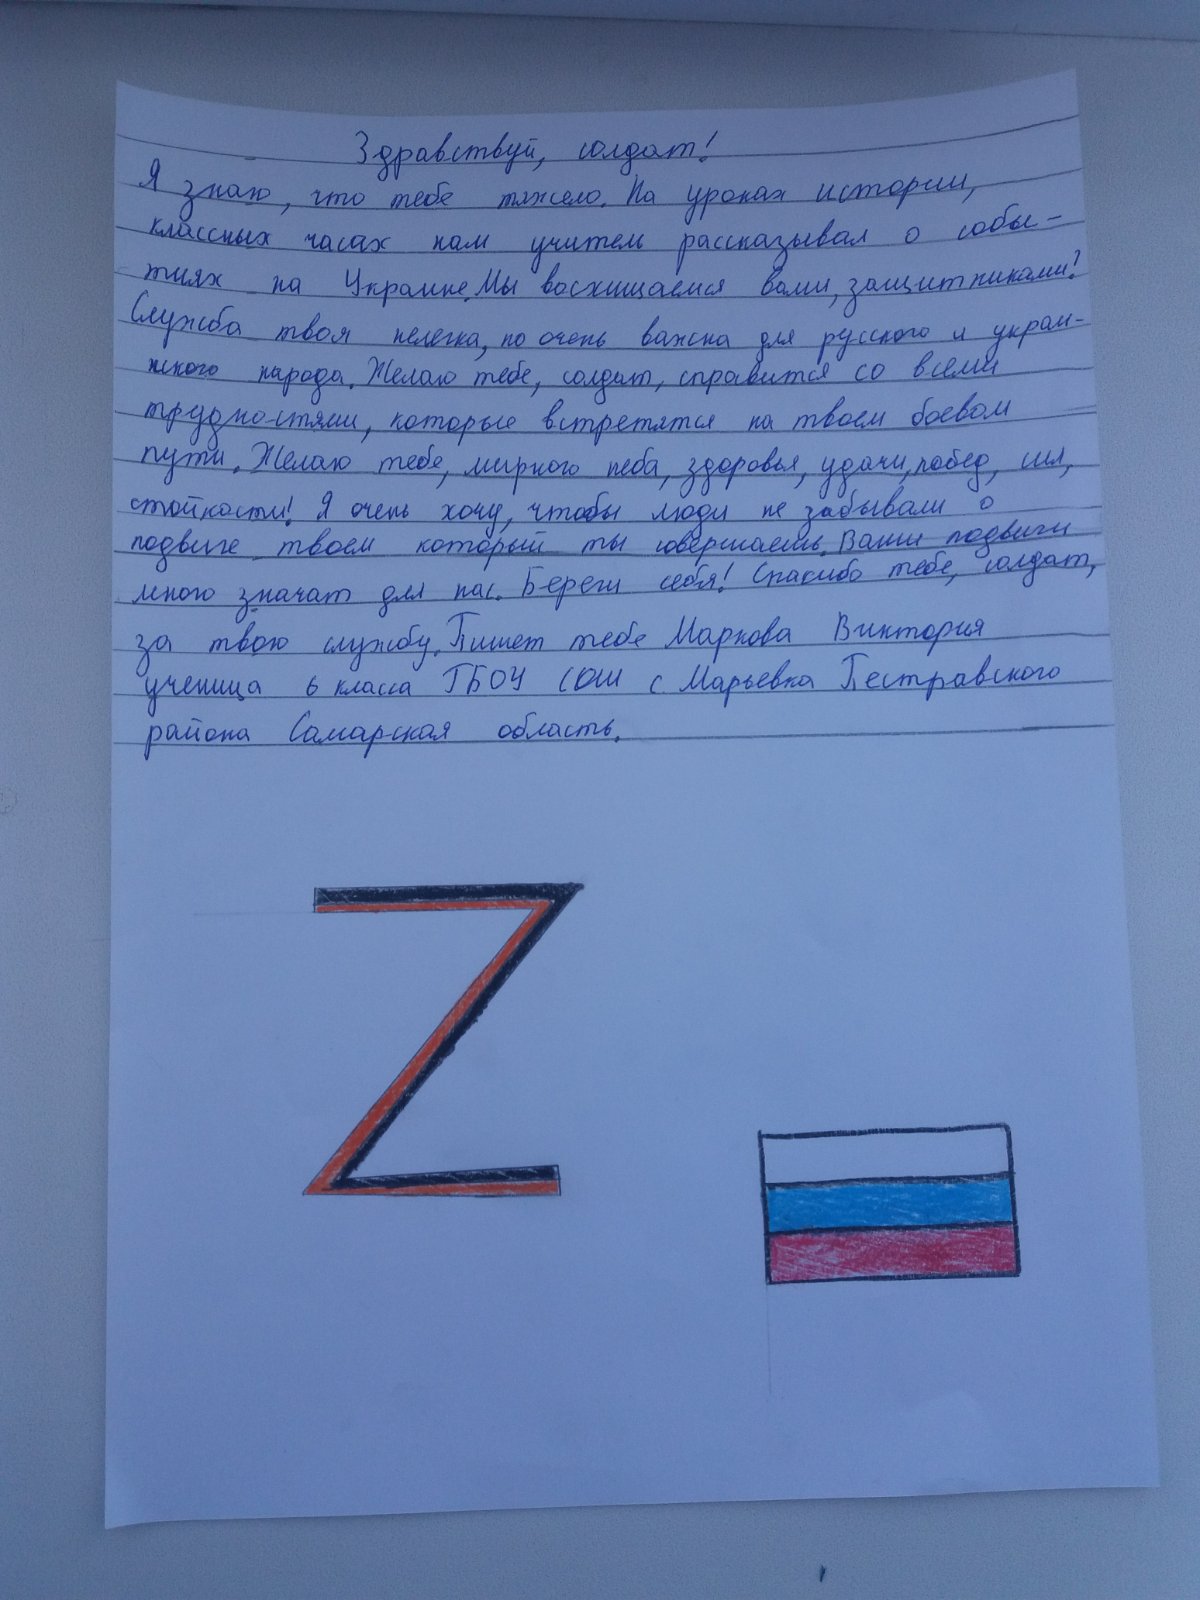 Здравствуй, солдат!
Я знаю, что тебе тяжело. На уроках истории,
классных часах нам учитель рассказывал о собы-
тиях на Украине. Мы восхищаемся вами, защитниками!
Служба твоя нелегка, но очень важна для русского и украи-
нского народа. Желаю тебе, солдат, справится со всеми
трудностями, которые встретятся на твоем боевом
пути. Желаю тебе, мирного неба, здоровья, удачи, побед, сил,
стойкости! Я очень хочу, чтобы люди не забывали о
подвиге твоем который ты совершаешь. Ваши подвиги
много значат для нас. Береги себя! Спасибо тебе, солдат,
за твою службу. Пишет тебе Маркова Виктория
ученица 6 класса ГБОУ СОШ с Марьевка Пестравского
района Самарская область.
Z